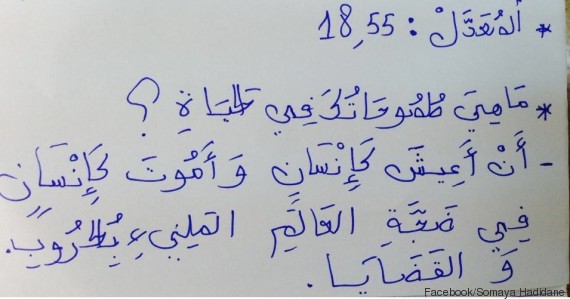 * اَلْمُعَدَّلْ : 18,55
* مَا هِيَ طُمُوحَاتُكَ فِي حَيَاةِ ؟
- أَنْ أَعِيشَ كَإِنْسَانٍ وَ أَمُوتَ كَإِنْسَانٍ
فِي ضَجَّةِ العَالَمِ المَلِيءِ بِالْحُرُوبِ.
وَ القَضَايَا.
Facebook/Somaya Hadidane